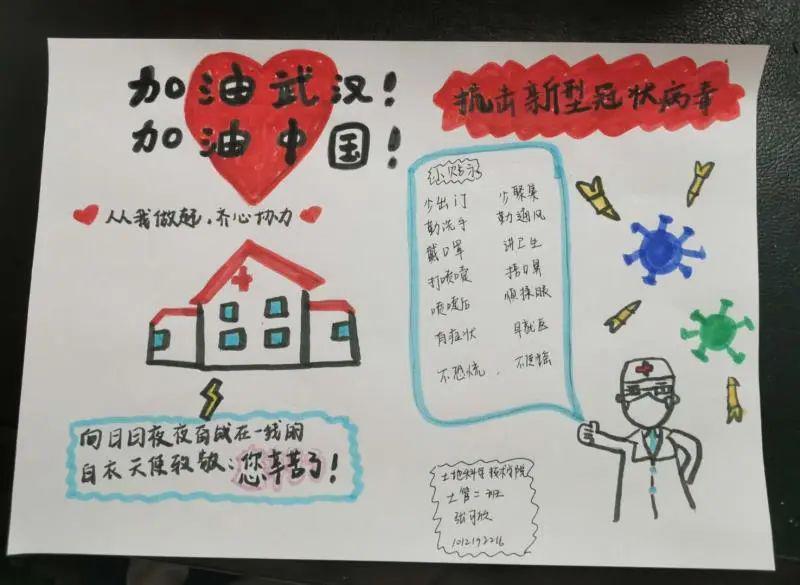 加油武汉！
加油中国！
人从我做起，齐心协力
向日日夜夜奋战在一线的
白衣天使致敬：您辛苦了！
抗击新型冠状病毒
小贴示
少出门 少聚集
勤洗手 勤通风
戴口罩 讲卫生
打喷嚏 捂口鼻
喷嚏后 慎揉眼
有症状 早就医
不恐慌，不传谣
土地科学技术学院
土管二班
张可欣